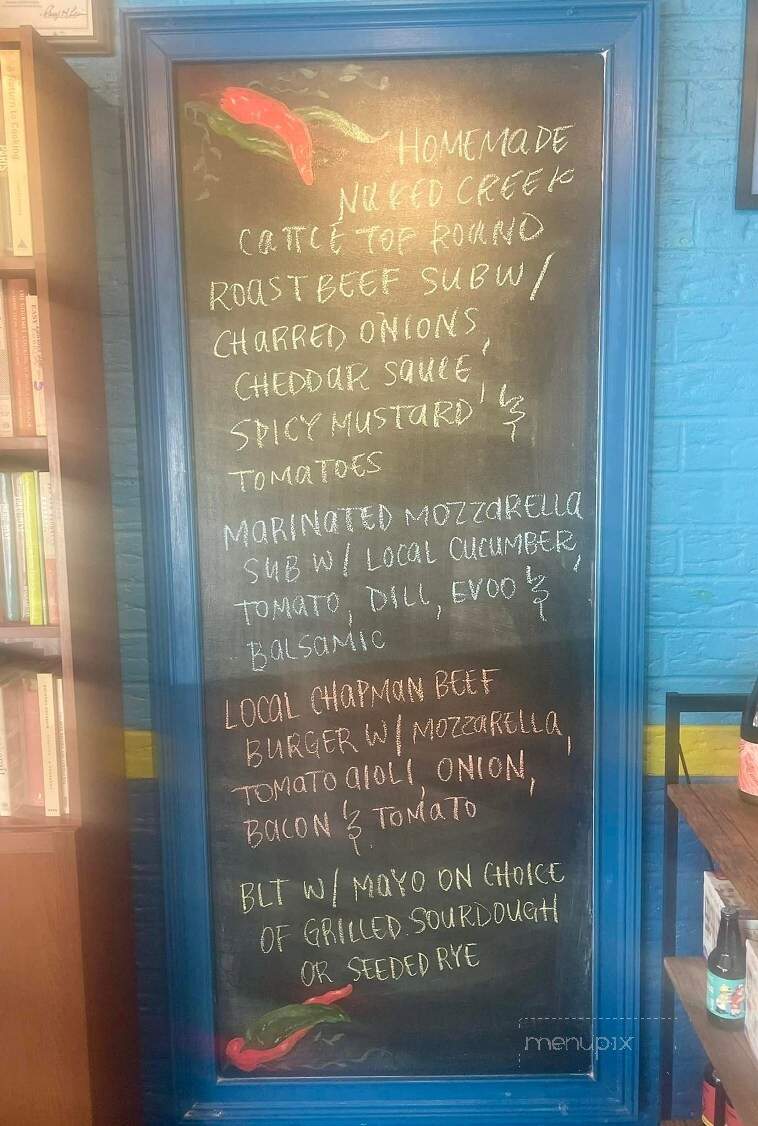 HOMEMADE
NAKED CREEK
CATTLE TOP ROUND
ROAST BEEF SUB W/
CHARRED ONIONS,
CHEDDAR SAUCE,
SPICY MUSTARD &
TOMATOES
MARINATED MOZZARELLA
SUB W/ LOCAL CUCUMBER,
TOMATO, DILL, EVOO &
BALSAMIC
LOCAL CHAPMAN BEEF
BURGER W/ MOZZARELLA,
TOMATO AIOLI, ONION,
BACON & TOMATO
BLT W/ MAYO ON CHOICE
OF GRILLED SOURDOUGH
OR SEEDED RYE
menupix
Return to Cooking